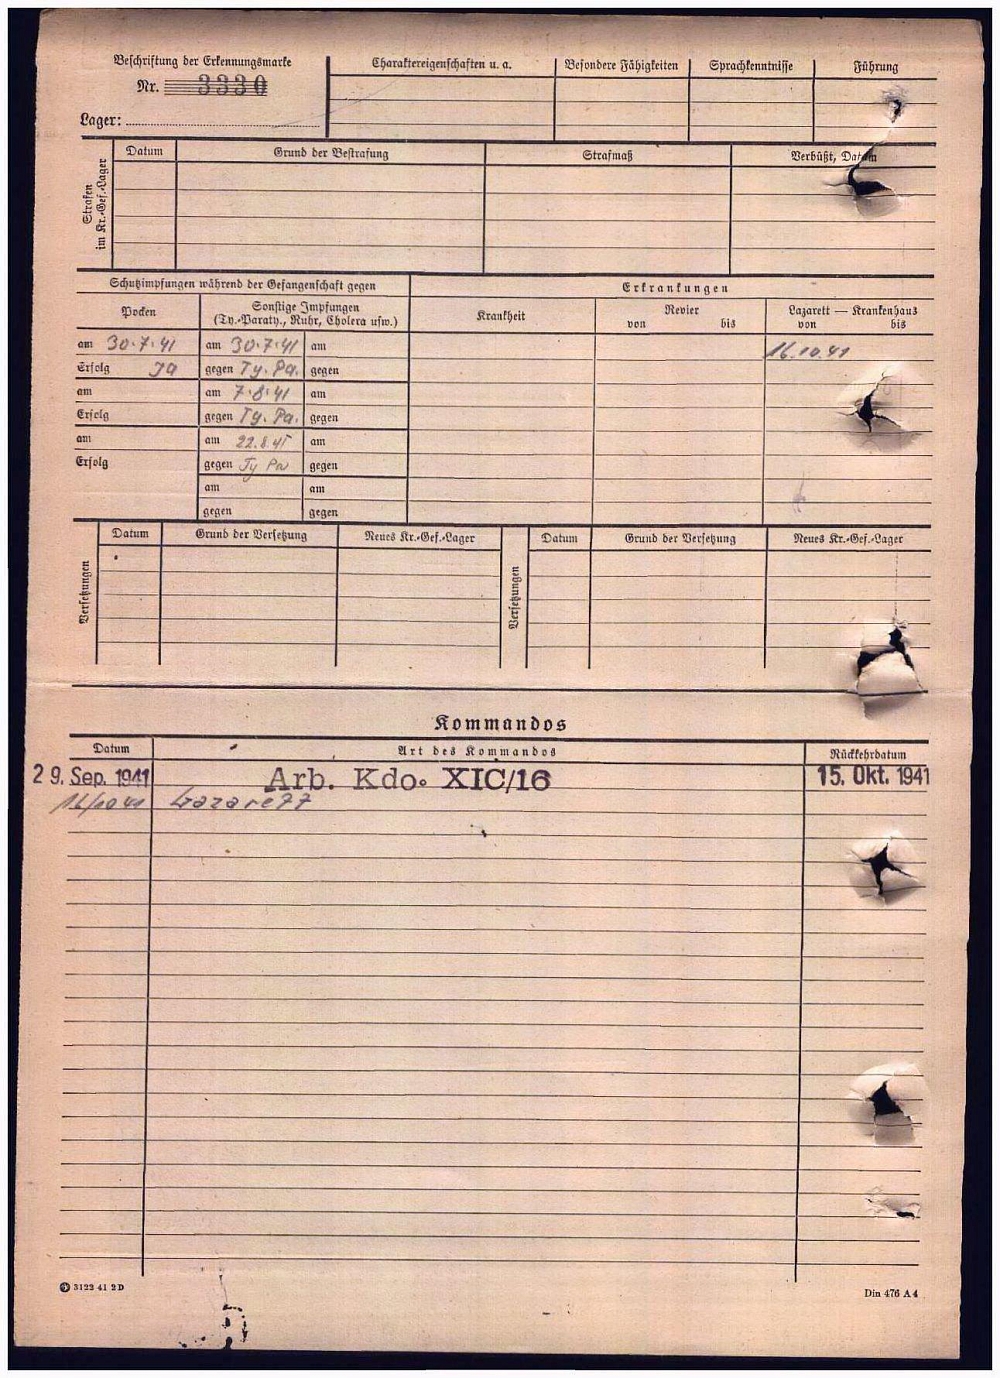 Beschriftung der Erkennungsmarke
Nr. 3330
Lager:
Charaktereigenschaften u. a. Besondere Fähigkeiten Sprachkenntnisse Führung
Strafen im Kr.-Gef.-Lager
Datum Grund der Bestrafung Strafmaß Verbüßt, Datum
Schutzimpfungen während der Gefangenschaft gegen
Erkrankungen
Pocken
Sonstige Impfungen
(Ty.-Paraty., Ruhr, Cholera usw.)
Krankheit
Revier
von bis
Lazarett — Krankenhaus
von bis
am 30.7.41 am 30.7.41 am 16.10.41
Erfolg Ja gegen Ty. Pa. gegen
am am 7.8.41 am
Erfolg gegen Ty. Pa. gegen
am am 22.8.41 am
Erfolg gegen Ty Pa gegen
am am
gegen gegen
Versetzungen
Datum Grund der Versetzung Neues Kr.-Gef.-Lager
Versetzungen
Datum Grund der Versetzung Neues Kr.-Gef.-Lager
Kommandos
Datum Art des Kommandos Rückkehrdatum
29. Sep. 1941 Arb. Kdo. XIC/16 15. Okt. 1941
16/10 41 Lazarett
3122 41 2D
Din 476 A4